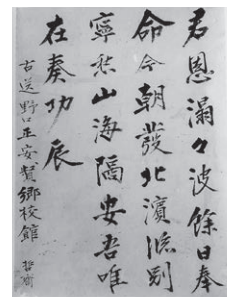 君恩々波餘日奉
命今朝發北濱臨別
寧愁山海隔安吾唯
在奏功辰
右送野口正安賢郷校館